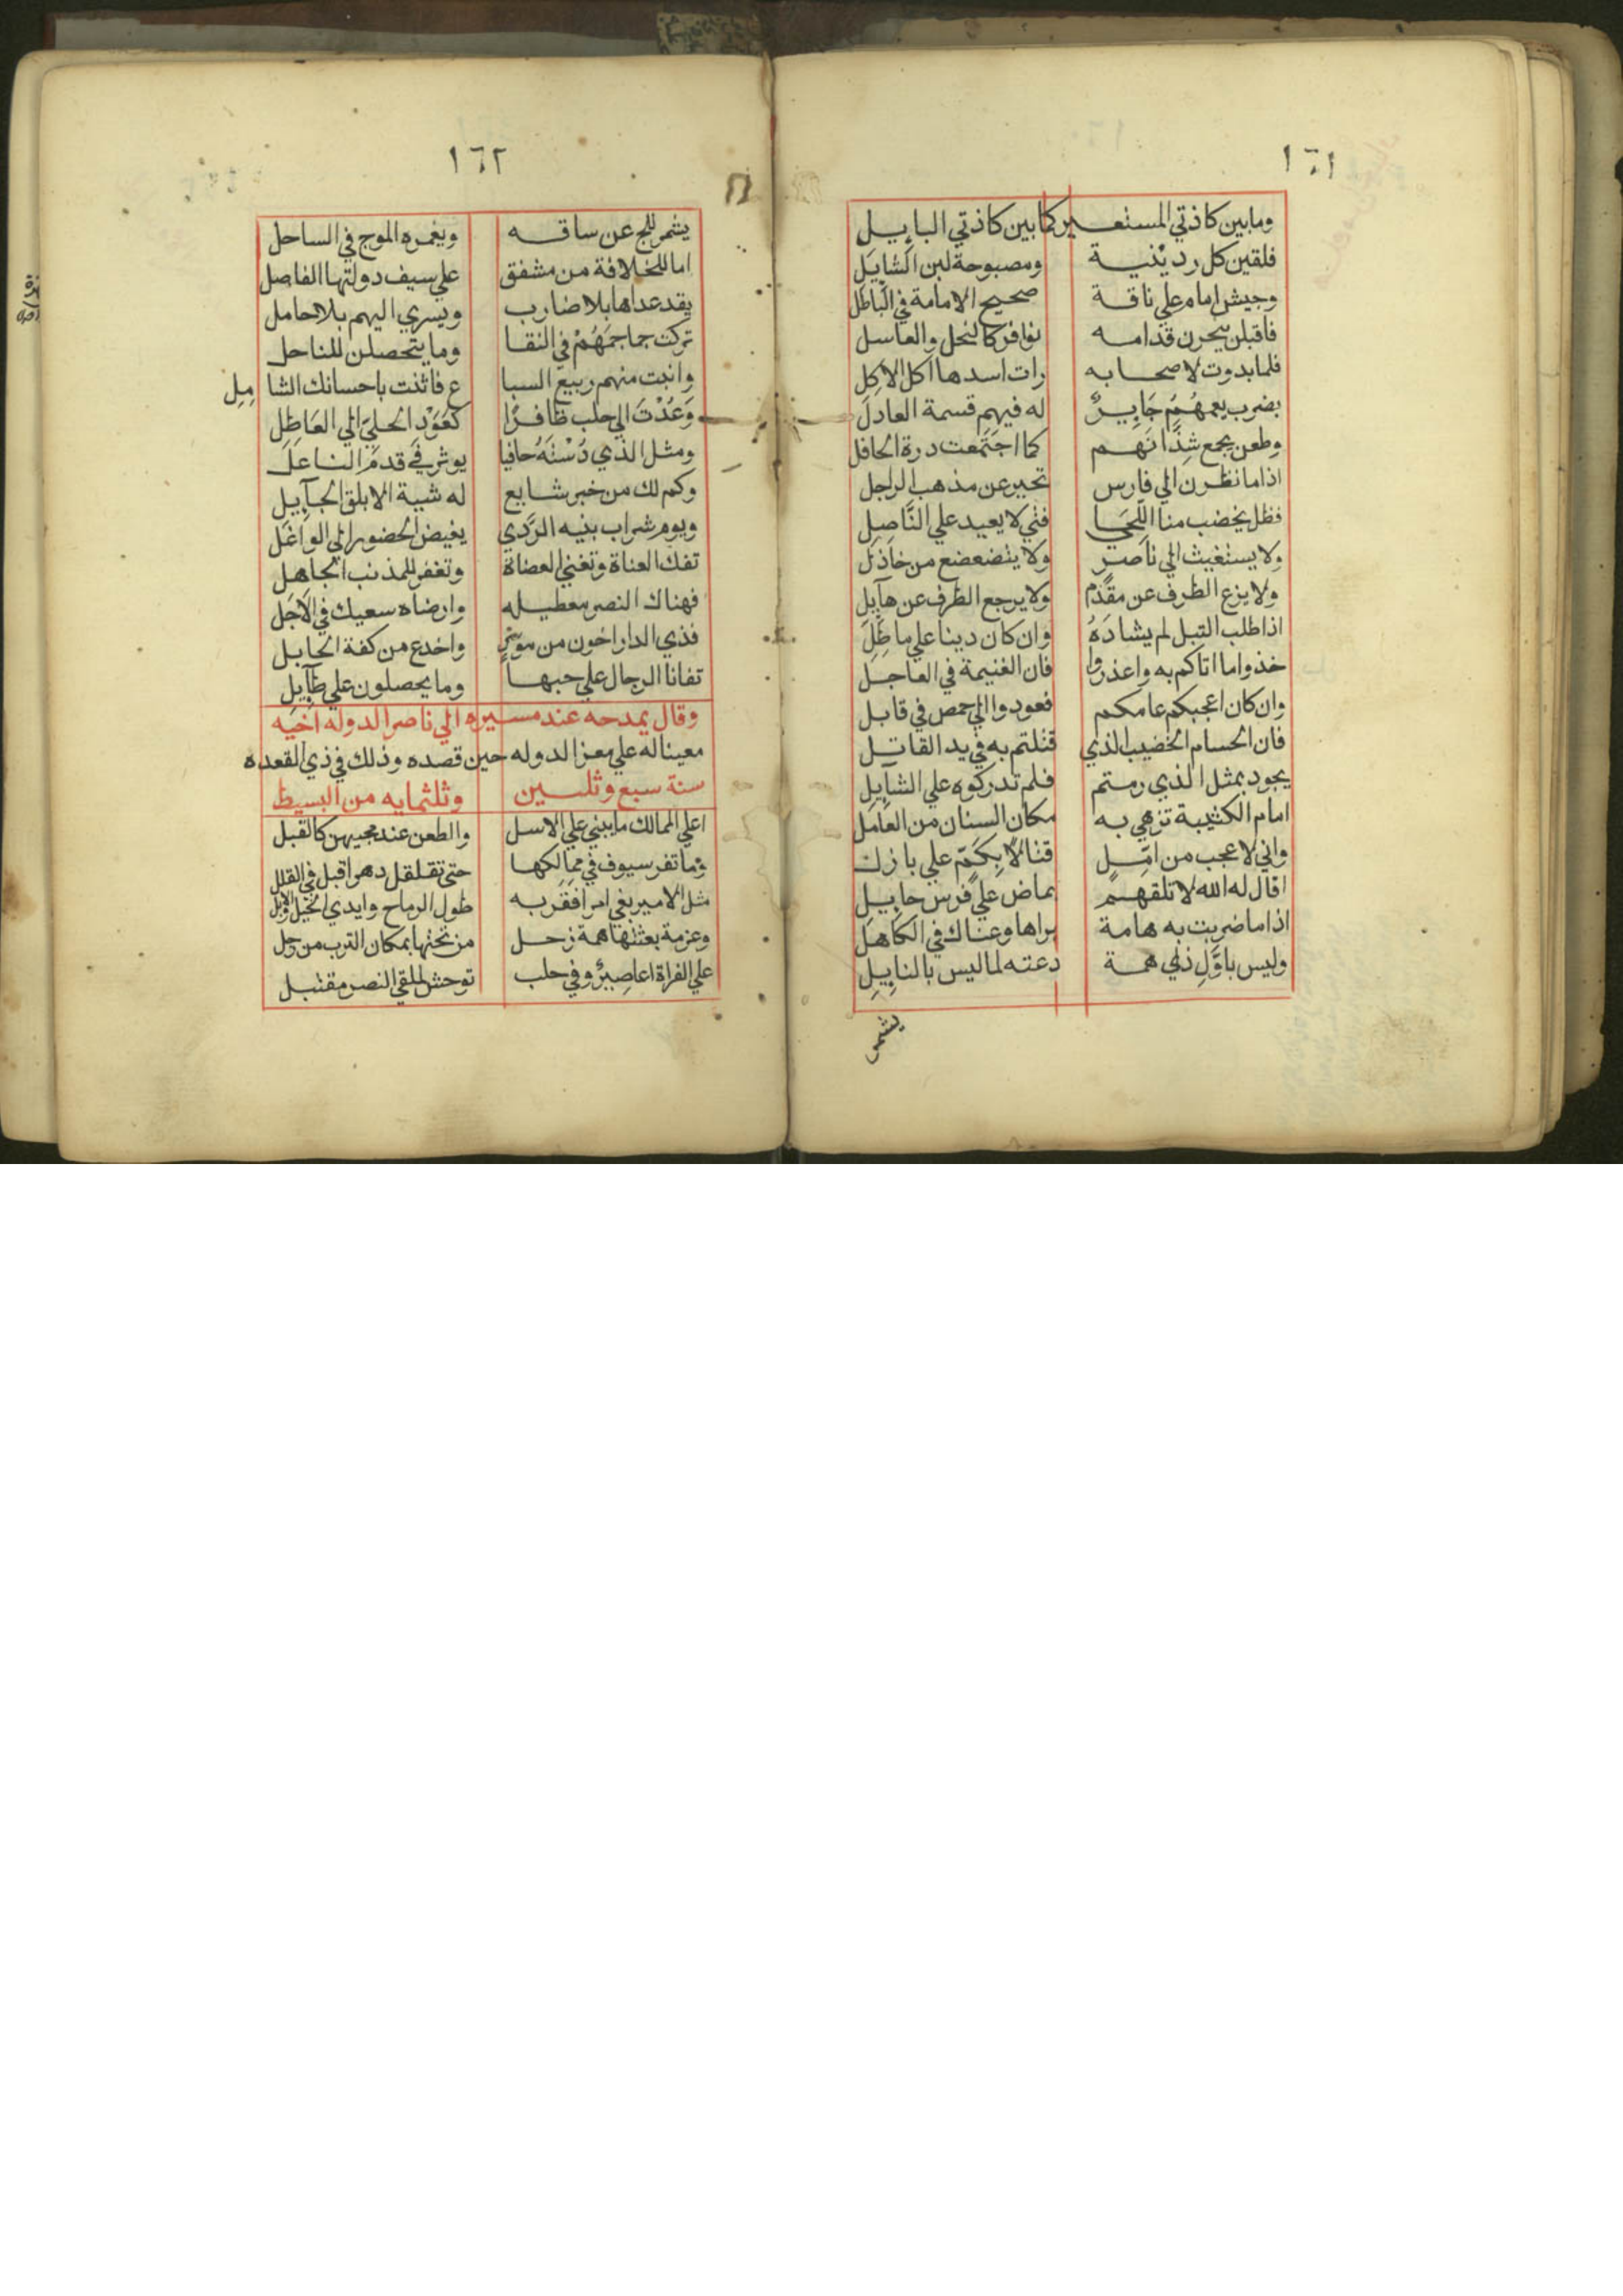 ١٦١
وما بين كاذتي المستعـير كما بين كاذتي البايـل
فلقين كل ردينية ومصبوحة لبن الشايل
وجيش امام علي ناقة صحيح الامامة في الباطل
فاقبلن ينحزن قدامه نوافر كالنحل والعاسل
فلما بدوت لاصحابه رات اسدها اكل الاكل
بضرب يعمهُمُ جَايِرٌ له فيهم قسمة العادل
وطعن يجمع شذَّانهم كما اجتَمعت درة الحافل
اذا ما نظرن الي فارس تحير عن مذهب الراجل
فظل يخضب منا اللّحَيا فتي لا يعيد علي النَّاصِل
ولا يستغيث الي ناصر ولا يتضعضع من خاذل
ولا يزع الطرف عن مقدم ولا يرجع الطرف عن هآيل
اذا طلب التبل لم يشادَهُ وان كان دينا علي ماطل
خذوا ما اتاكم به واعذروا فان الغنيمة في العاجل
وان كان اعجبكم عامكم فعودوا الي حمص في قابل
فان الحسام الخضيب الذي قتلتم به في يد القاتل
يجود بمثل الذي رمتم فلم تدركوه علي الشآيل
امام الكتيبة تزهي به مكان السنان من العامل
واني لاعجب من امِّلٍ قتالًا بِكَمّ علي بازل
اقال له الله لا تلقهم بماض علي فرس حايل
اذا ما ضربت به هامة براها وغناك في الكاهل
وليس باوَّلِ ذي همة دعته لما ليس بالنايل
يشمر
١٦٢
يشمر للج عن ساقه ويغمره الموج في الساحل
اما للخلافة من مشفق علي سيف دولتها الفاصل
يقد عداها بلا ضارب ويسري اليهم بلا حامل
تركت جماجمَهُمْ في النقا وما يتحصلن للناحل
وانبت منهم ربيع السبا ع فاثنت باحسانك الشا مِلِ
وَعُدْتَ الي حلب ظافرًا كعَوْدِ الحليّ الي العَاطِل
ومثل الذي دُسْتَهُ حافيا يوثر في قدم الناعل
وكم لك من خبر شايع له شية الابلق الجآيل
ويوم شراب بنيه الرَّدي يغيض الحضور الي الواغل
تفك العناة وتغني العضاة وتغفر للمذنب الجاهل
فهناك النصر معطيله وارضاه سعيك في الاَجَل
فذي الدار اخون من مومسٍ واخدع من كفة الحابل
تفانا الرجال علي حبها وما يحصلون علي طآيل
وقال يمدحه عند مسيره الي ناصر الدوله اخيه
معينا له علي معز الدوله حين قصده وذلك في ذي القعده
سنة سبع وثلثين وثلثمايه من البسيط
اعلي الممالك ما يبني علي الاسل والطعن عند محبيهن كالقبل
وما تقر سيوف في ممالكها حتي تقلقل دهرا قبل في القلل
مثل الامير بغي امرا فقربه طول الرماح وايدي الخيل والابل
وعزمة بعثتها همة زحل من تحتها بمكان الترب من زحل
علي الفراة اعاصيرٌ وفي حلب توحش لملقي النصر مقتبل